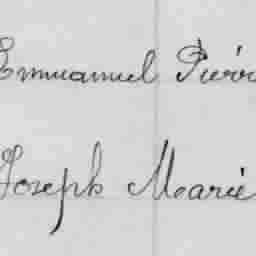 Emmanuel Pierr
Joseph Marie